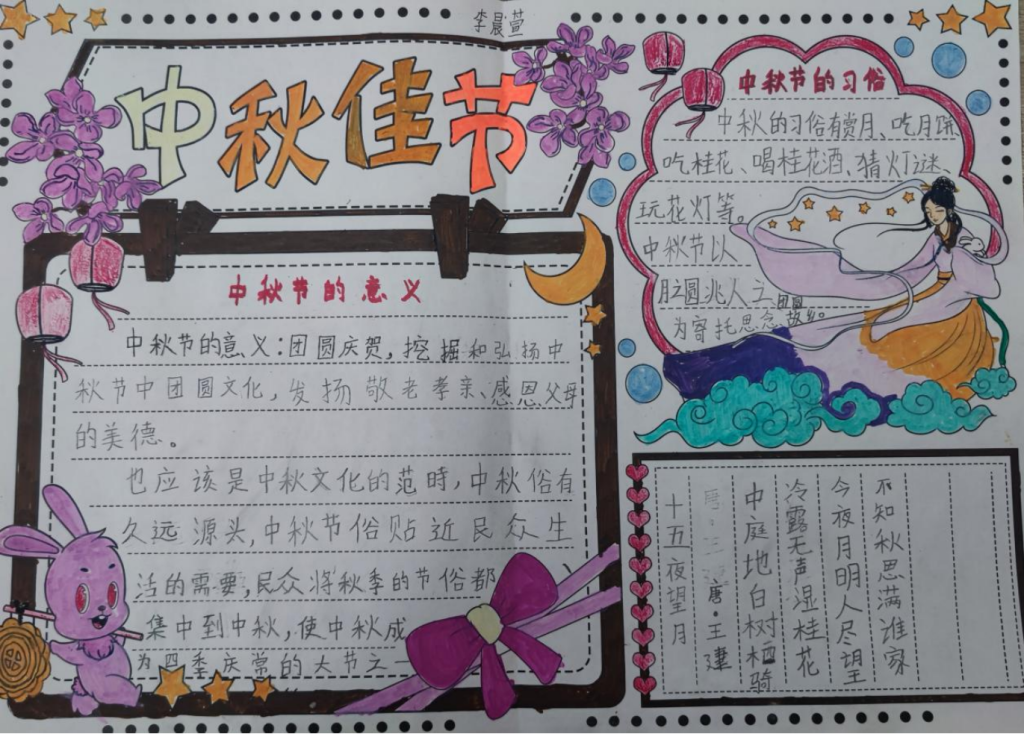 李晨萱
中秋佳节
中秋节的意义
中秋节的意义:团圆庆贺,挖掘和弘扬中
秋节中团圆文化,发扬敬老孝亲、感恩父母
的美德。
也应该是中秋文化的范時,中秋俗有
久远源头,中秋节俗贴近民众生
活的需要,民众将秋季的节俗都
集中到中秋,使中秋成
为四季庆常的大节之一
中秋节的习俗
中秋的习俗有赏月、吃月饼
吃桂花、喝桂花酒、猜灯谜
玩花灯等。
中秋节以
月之圆兆人之团圆
为寄托思念故乡。
十五夜望月
唐·王建
中庭地白树栖骑
冷露无声湿桂花
今夜月明人尽望
不知秋思满谁家